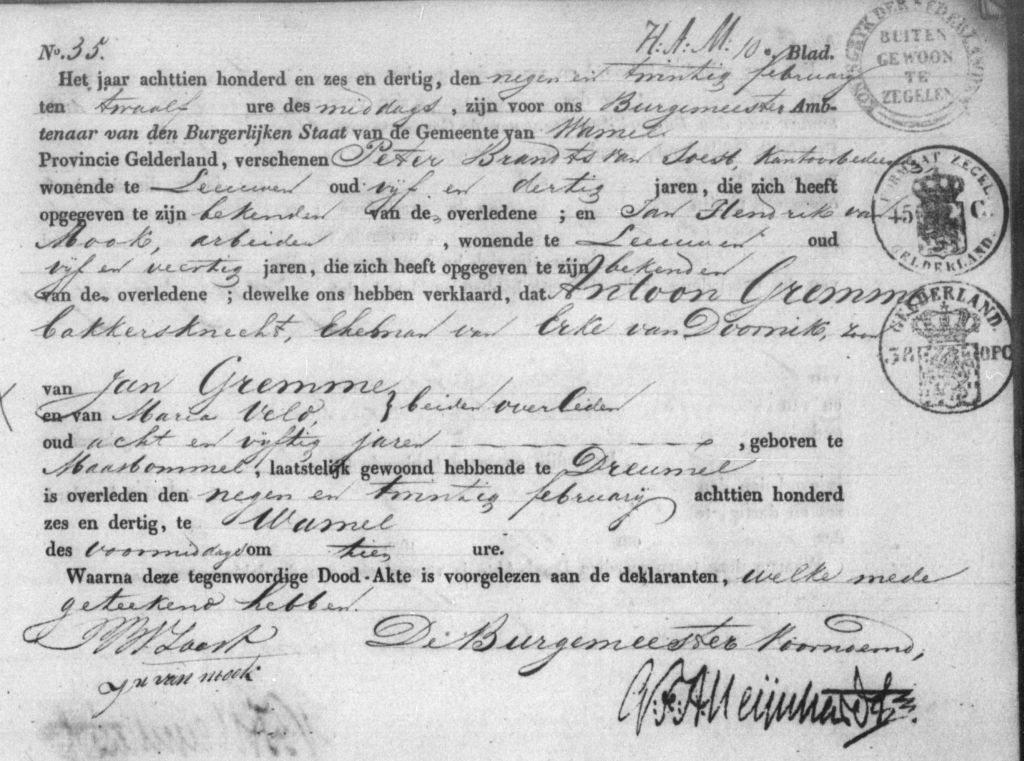 No. 35. H. A. M. 10e Blad.
Het jaar achttien honderd en zes en dertig, den negen en twintig february
ten twaalf ure des middags, zijn voor ons Burgemeester Amb-
tenaar van den Burgerlijken Staat van de Gemeente van Wamel
Provincie Gelderland, verschenen Peter Brandts van Soest, Kantoorbediende
wonende te Leeuwen oud vijf en dertig jaren, die zich heeft
opgegeven te zijn bekenden van de overledene ; en Jan Hendrik van
Mook, arbeider , wonende te Leeuwen oud
vijf en veertig jaren, die zich heeft opgegeven te zijn bekenden
van de overledene ; dewelke ons hebben verklaard, dat Antoon Gremme
bakkersknecht, Eheman van Erke van Doornik, zoon
van Jan Gremme
en van Maria Veld, } beiden overleden
oud acht en vijftig jaren , geboren te
Maasbommel, laatstelijk gewoond hebbende te Dreumel
is overleden den negen en twintig february achttien honderd
zes en dertig, te Wamel
des voormiddags om tien ure.
Waarna deze tegenwoordige Dood-Akte is voorgelezen aan de deklaranten, welke mede
geteekend hebben.
PBVSoest De Burgemeester Voornoemd,
JH van mook
Meijnhardt
KONINGRYK DER NEDERLANDEN
BUITEN
GEWOON
TE
ZEGELEN
FORMAAT ZEGEL
45 C.
GELDERLAND.
GELDERLAND.
38 OPC